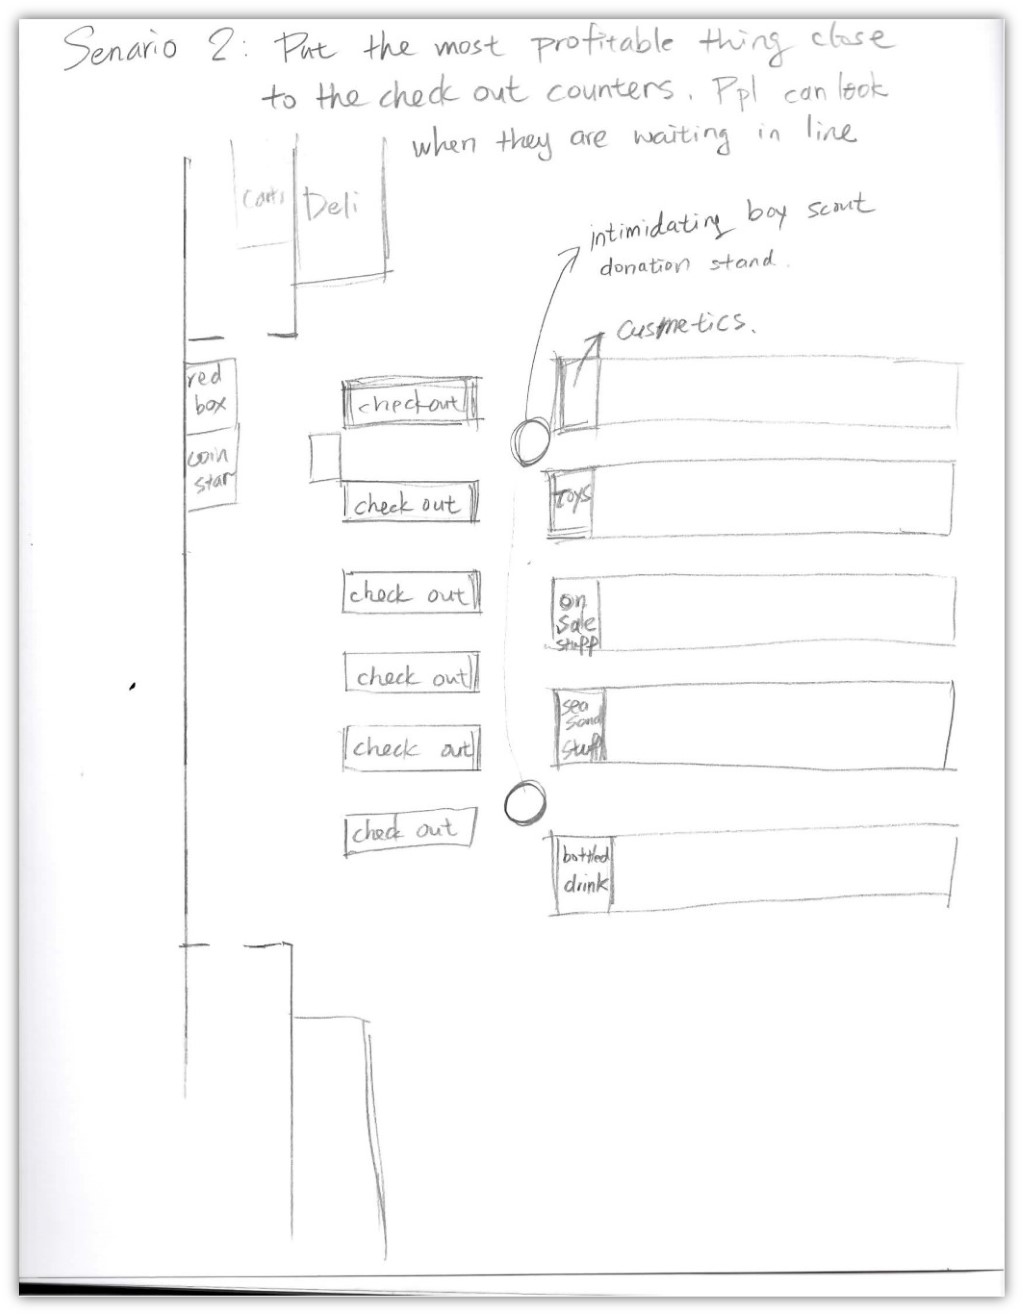 Senario 2: Put the most profitable thing close
to the check out counters. Ppl can look
when they are waiting in line
Carts
Deli
intimidating boy scout
donation stand.
Cusmetics.
red
box
coin
star
checkout
check out
check out
check out
check out
check out
toys
on
sale
stuff
sea
sond
stuff
bottled
drink